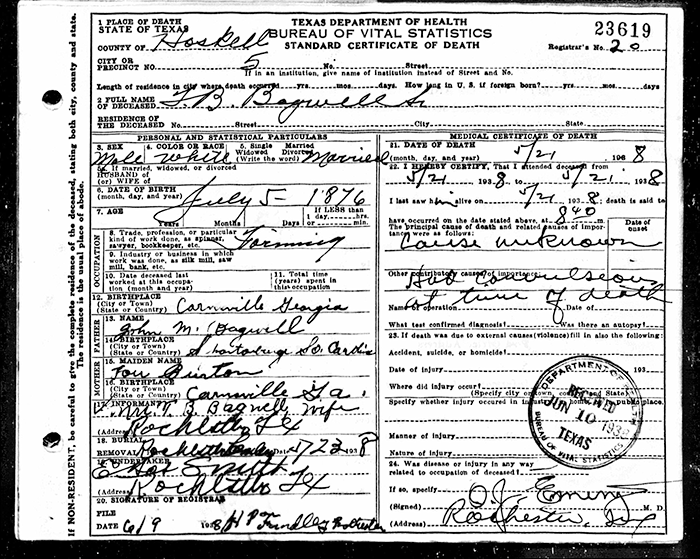 1 PLACE OF DEATH
STATE OF TEXAS
COUNTY OF Haskell
CITY OR
PRECINCT NO. 5 No. Street
TEXAS DEPARTMENT OF HEALTH
BUREAU OF VITAL STATISTICS
STANDARD CERTIFICATE OF DEATH
23619
Registrar's No. 20
If in an institution, give name of institution instead of Street and No.
Length of residence in city where death occurred yrs. mos. days. How long in U. S. if foreign born? yrs. mos. days
2 FULL NAME
OF DECEASED T. B. Bagwell Sr
RESIDENCE OF
THE DECEASED No. Street City County State
PERSONAL AND STATISTICAL PARTICULARS
3. SEX
Male
4. COLOR OR RACE
White
5. Single Married
Widowed Divorced
(Write the word) Married
5a. If married, widowed, or divorced
HUSBAND OF
(or) WIFE OF
6. DATE OF BIRTH
(month, day, and year) July 5 - 1876
7. AGE
Years Months Days
If LESS than
1 day, hrs.
or min.
OCCUPATION
8. Trade, profession, or particular
kind of work done, as spinner,
sawyer, bookkeeper, etc. Farming
9. Industry or business in which
work was done, as silk mill, saw
mill, bank, etc.
10. Date deceased last
worked at this occupa-
tion (month and year)
11. Total time
(years) spent in
this occupation
12. BIRTHPLACE
(City or Town)
(State or Country) Carnsville Georgia
FATHER
13. NAME
John M. Bagwell
14. BIRTHPLACE
(City or Town)
(State or Country)
MOTHER
15. MAIDEN NAME
16. BIRTHPLACE
(City or Town)
(State or Country) Carnsville Ga.
17. INFORMANT
Mrs. T. B. Bagwell wife
(Address) Rochester Tex
18. BURIAL
REMOVAL Rochester 5/23 1938
19. UNDERTAKER
Smith
(Address) Rochester Tex
20. SIGNATURE OF REGISTRAR
FILE
DATE 6/9 1938 Rochester
MEDICAL CERTIFICATE OF DEATH
21. DATE OF DEATH
(month, day, and year) 5/21 1938
22. I HEREBY CERTIFY, That I attended deceased from
5/21 1938 to 5/21 1938
I last saw him alive on 5/21 1938; death is said to
have occurred on the date stated above, at 840 m.
The principal cause of death and related causes of impor-
tance were as follows:
Date of
onset
Cause unknown
Other contributory causes of importance:
Had convulsion
at time of death
Name of operation Date of
What test confirmed diagnosis? Was there an autopsy?
23. If death was due to external causes (violence) fill in also the following:
Accident, suicide, or homicide?
Date of injury 193
Where did injury occur?
(Specify city or town, county and State)
Specify whether injury occurred in industry, home, or public place.
Manner of injury
Nature of injury
24. Was disease or injury in any way
related to occupation of deceased?
If so, specify
(Signed) M. D.
(Address) Rochester, Tex
DEPARTMENT OF HEALTH
RECEIVED
JUN 10 1938
TEXAS
BUREAU OF VITAL STATISTICS
If NON-RESIDENT, be careful to give the complete residence of the deceased, stating both city, county and state.
The residence is the usual place of abode.